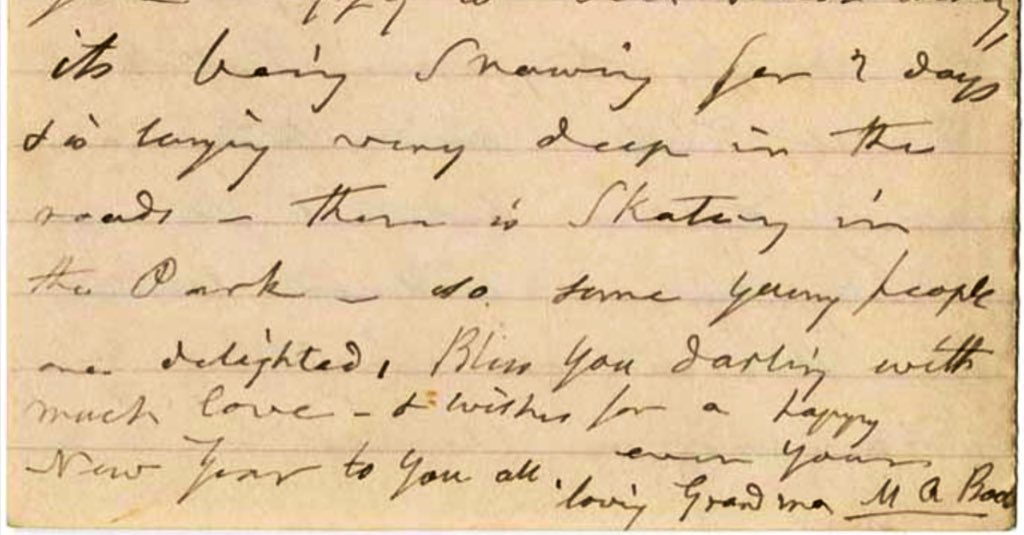 its being Snowing for 2 days
& is laying very deep in the
roads – there is Skating in
the Park – so some young people
are delighted, Bless you darling with
much love – & wishes for a happy
New Year to you all. ever yours
loving Grandma M A